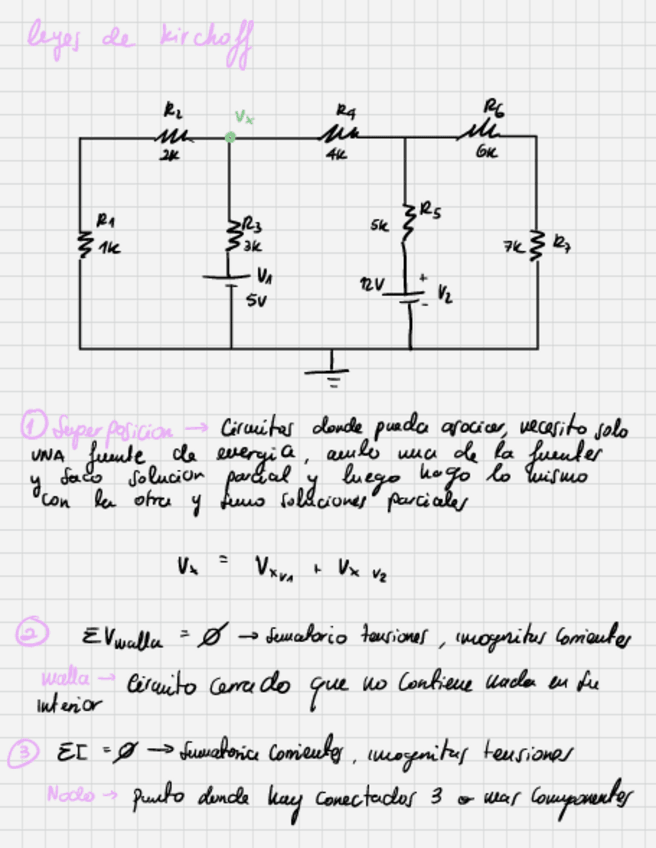 leyes de kirchoff
R2 Vx R4 R6
2k 4k 6k
R1 1k
R3 3k
V1 5V
5k R5
12V + V2 -
7k R7
① Superposicion → Circuitos donde pueda asociar, necesito solo
UNA fuente de energia, anulo una de la fuentes
y saco solucion parcial y luego hago lo mismo
con la otra y sumo soluciones parciales
Vx = VxV1 + Vx V2
② ΣVmalla = Ø → Sumatorio tensiones, incognitas corrientes
malla → Circuito cerrado que no contiene nada en su
interior
③ ΣI = Ø → Sumatorio corrientes, incognitas tensiones
Nodo → punto donde hay conectados 3 o mas componentes